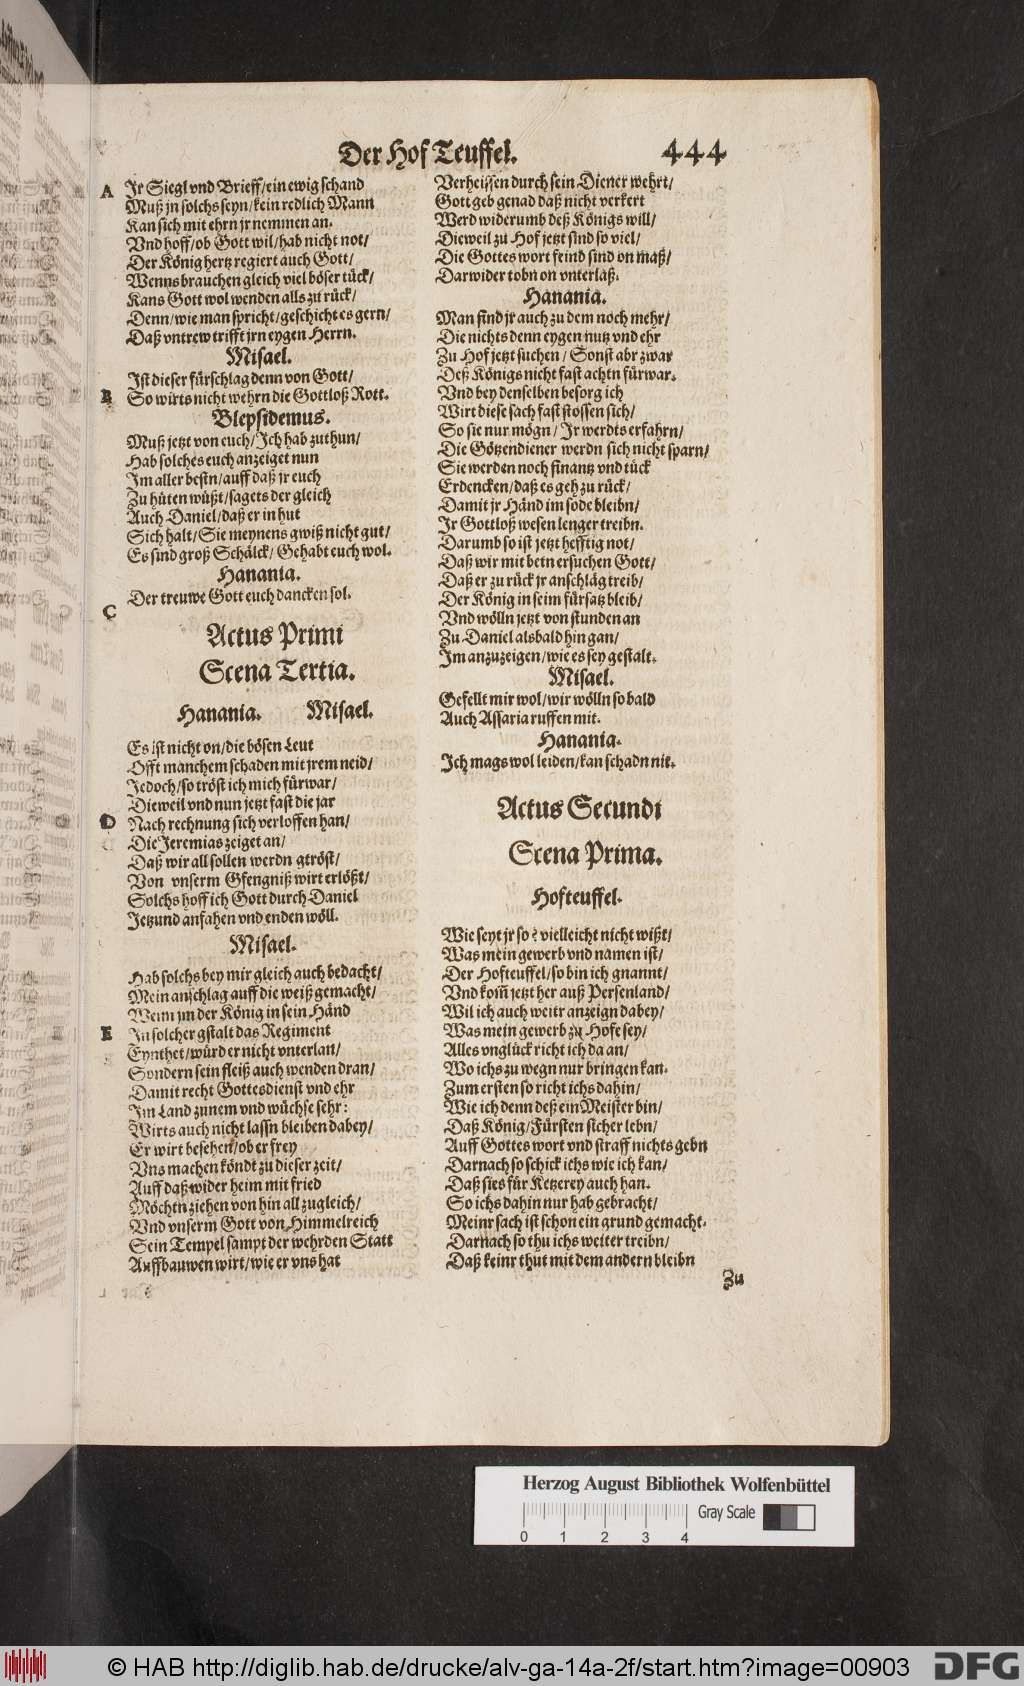 Der Hof Teuffel. 444
A Jr Siegl vnd Brieff/ein ewig schand
Muß jn solchs seyn/kein redlich Mann
Kan sich mit ehrn jr nemmen an.
Vnd hoff/ob Gott wil/hab nicht not/
Der König hertz regiert auch Gott/
Wenns brauchen gleich viel böser tück/
Kans Gott wol wenden alls zu rück/
Denn/wie man spricht/geschicht es gern/
Daß vntrew trifft jrn eygen Herrn.
Misael.
Ist dieser fürschlag denn von Gott/
B So wirts nicht wehrn die Gottloß Rott.
Blepsidemus.
Muß jetzt von euch/Ich hab zuthun/
Hab solches euch anzeiget nun
Im aller bestn/auff daß jr euch
Zu hüten wüßt/sagets der gleich
Auch Daniel/daß er in hut
Sich halt/Sie meynens gwiß nicht gut/
Es sind groß Schälck/Gehabt euch wol.
Hanania.
Der treuwe Gott euch dancken sol.
C
Actus Primi
Scena Tertia.
Hanania. Misael.
Es ist nicht on/die bösen Leut
Offt manchem schaden mit jrem neid/
Jedoch/so tröst ich mich fürwar/
Dieweil vnd nun jetzt fast die jar
D Nach rechnung sich verloffen han/
Die Jeremias zeiget an/
Daß wir all sollen werdn gtröst/
Von vnserm Gfengniß wirt erlößt/
Solchs hoff ich Gott durch Daniel
Jetzund anfahen vnd enden wöll.
Misael.
Hab solchs bey mir gleich auch bedacht/
Mein anschlag auff die weiß gemacht/
Wenn jm der König in sein Händ
E In solcher gstalt das Regiment
Eynthet/würd er nicht vnterlan/
Sondern sein fleiß auch wenden dran/
Damit recht Gottesdienst vnd ehr
Im Land zunem vnd wüchse sehr:
Wirts auch nicht lassn bleiben dabey/
Er wirt besehen/ob er frey
Vns machen köndt zu dieser zeit/
Auff daß wider heim mit fried
Möchtn ziehen von hin all zugleich/
Vnd vnserm Gott von Himmelreich
Sein Tempel sampt der wehrden Statt
Auffbauwen wirt/wie er vns hat
Verheissen durch sein Diener wehrt/
Gott geb genad daß nicht verkert
Werd widerumb deß Königs will/
Dieweil zu Hof jetzt sind so viel/
Die Gottes wort feind sind on maß/
Darwider tobn on vnterlaß.
Hanania.
Man find jr auch zu dem noch mehr/
Die nichts denn eygen nutz vnd ehr
Zu Hof jetzt suchen/Sonst abr zwar
Deß Königs nicht fast achtn fürwar.
Vnd bey denselben besorg ich
Wirt diese sach fast stossen sich/
So sie nur mögn/Ir werdts erfahrn/
Die Götzendiener werdn sich nicht sparn/
Sie werden noch finantz vnd tück
Erdencken/daß es geh zu rück/
Damit jr Händ im sode bleibn/
Ir Gottloß wesen lenger treibn.
Darumb so ist jetzt hefftig not/
Daß wir mit betn ersuchen Gott/
Daß er zu rück jr anschläg treib/
Der König in seim fürsatz bleib/
Vnd wölln jetzt von stunden an
Zu Daniel alsbald hin gan/
Im anzuzeigen/wie es sey gestalt.
Misael.
Gefellt mir wol/wir wölln so bald
Auch Assaria ruffen mit.
Hanania.
Ich mags wol leiden/kan schadn nit.
Actus Secundi
Scena Prima.
Hofteuffel.
Wie seyt jr so? vielleicht nicht wißt/
Was mein gewerb vnd namen ist/
Der Hofteuffel/so bin ich gnannt/
Vnd kom̃ jetzt her auß Persenland/
Wil ich auch weitr anzeign dabey/
Was mein gewerb zu Hofe sey/
Alles vnglück richt ich da an/
Wo ichs zu wegn nur bringen kan.
Zum ersten so richt ichs dahin/
Wie ich denn deß ein Meister bin/
Daß König/Fürsten sicher lebn/
Auff Gottes wort vnd straff nichts gebn
Darnach so schick ichs wie ich kan/
Daß sies für Ketzerey auch han.
So ichs dahin nur hab gebracht/
Meinr sach ist schon ein grund gemacht.
Darnach so thu ichs weiter treibn/
Daß keinr thut mit dem andern bleibn
Zu
Herzog August Bibliothek Wolfenbüttel
0 1 2 3 4 Gray Scale
© HAB http://diglib.hab.de/drucke/alv-ga-14a-2f/start.htm?image=00903 DFG